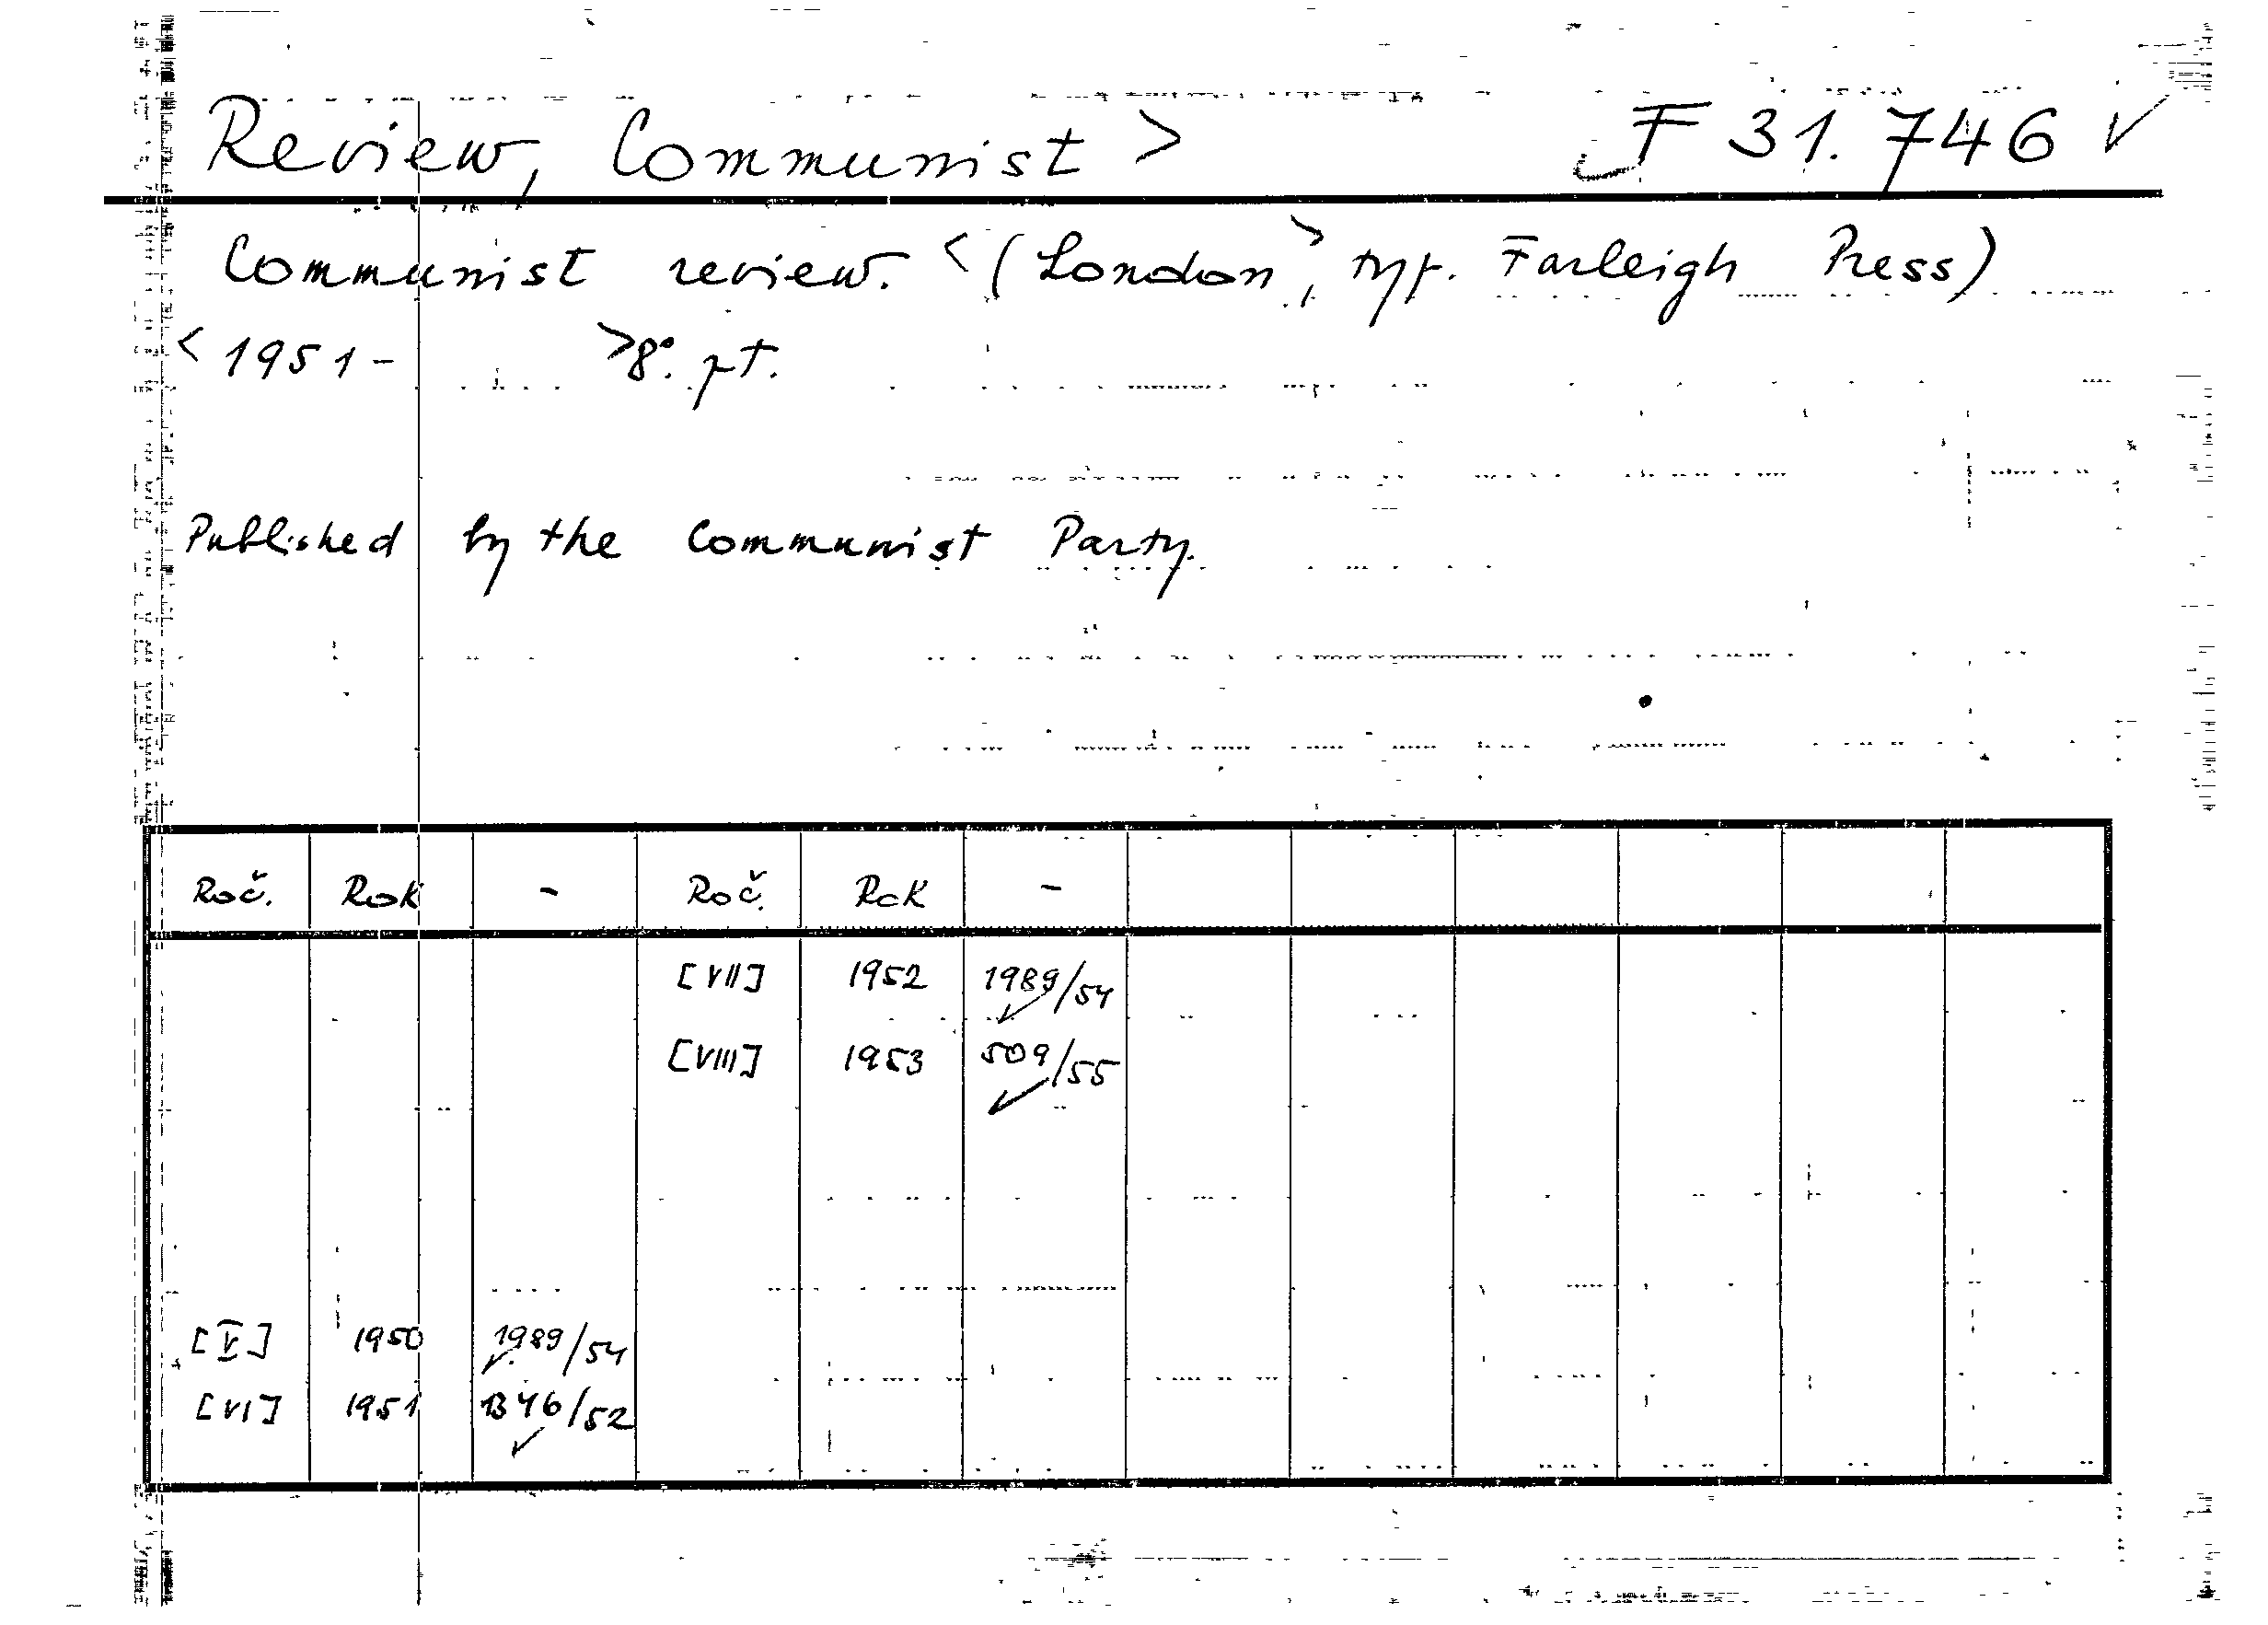 Review, Communist > F 31.746 ✓
Communist review. <(London>, typ. Farleigh Press)
<1951- >8°. pt.
Published by the Communist Party.
Roč. Rok - Roč. Rok -
[VII] 1952 1989/54 ✓
[VIII] 1953 509/55 ✓
[V] 1950 1989/54 ✓
[VI] 1951 1346/52 ✓